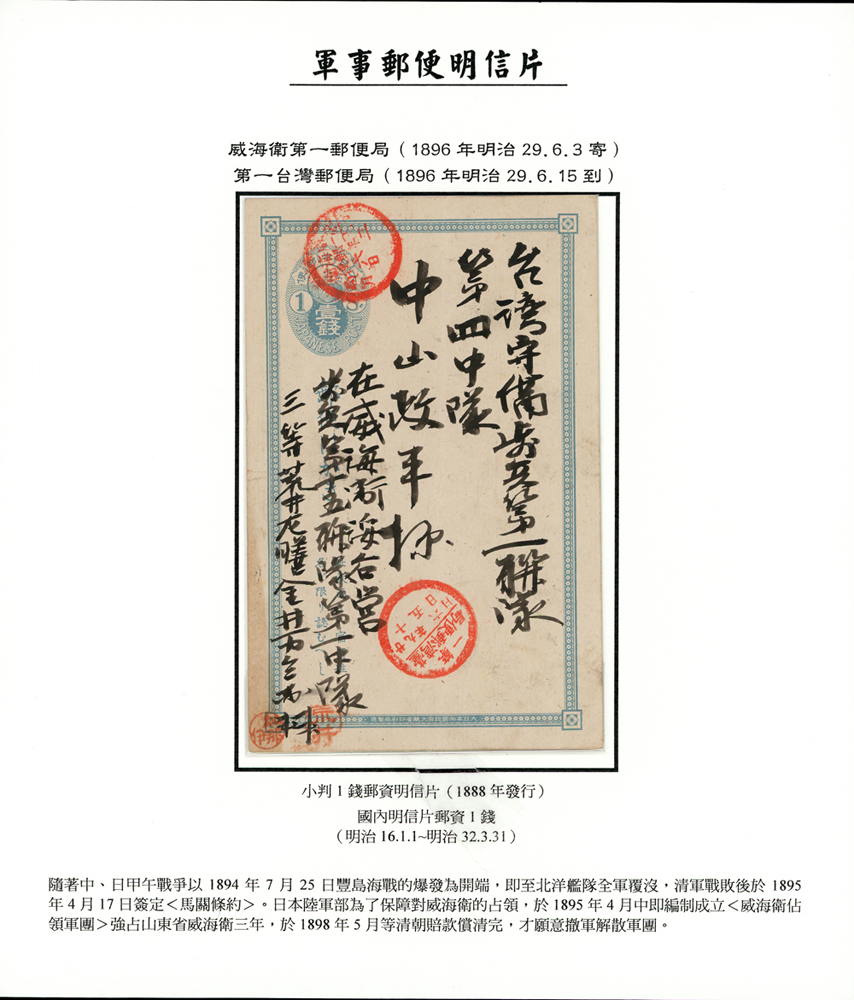 軍事郵便明信片
威海衛第一郵便局（1896 年明治 29.6.3 寄）
第一台灣郵便局（1896 年明治 29.6.15 到）
台湾守備歩兵第一聯隊
第四中隊
中山政平様
在威海衛綏右営
歩兵第十五聯隊第一中隊
三等
1
壹錢
JAPANESE POST
小判 1 錢郵資明信片（1888 年發行）
國內明信片郵資 1 錢
（明治 16.1.1~明治 32.3.31）
隨著中、日甲午戰爭以 1894 年 7 月 25 日豐島海戰的爆發為開端，即至北洋艦隊全軍覆沒，清軍戰敗後於 1895
年 4 月 17 日簽定＜馬關條約＞。日本陸軍部為了保障對威海衛的占領，於 1895 年 4 月中即編制成立＜威海衛佔
領軍團＞強占山東省威海衛三年，於 1898 年 5 月等清朝賠款償清完，才願意撤軍解散軍團。